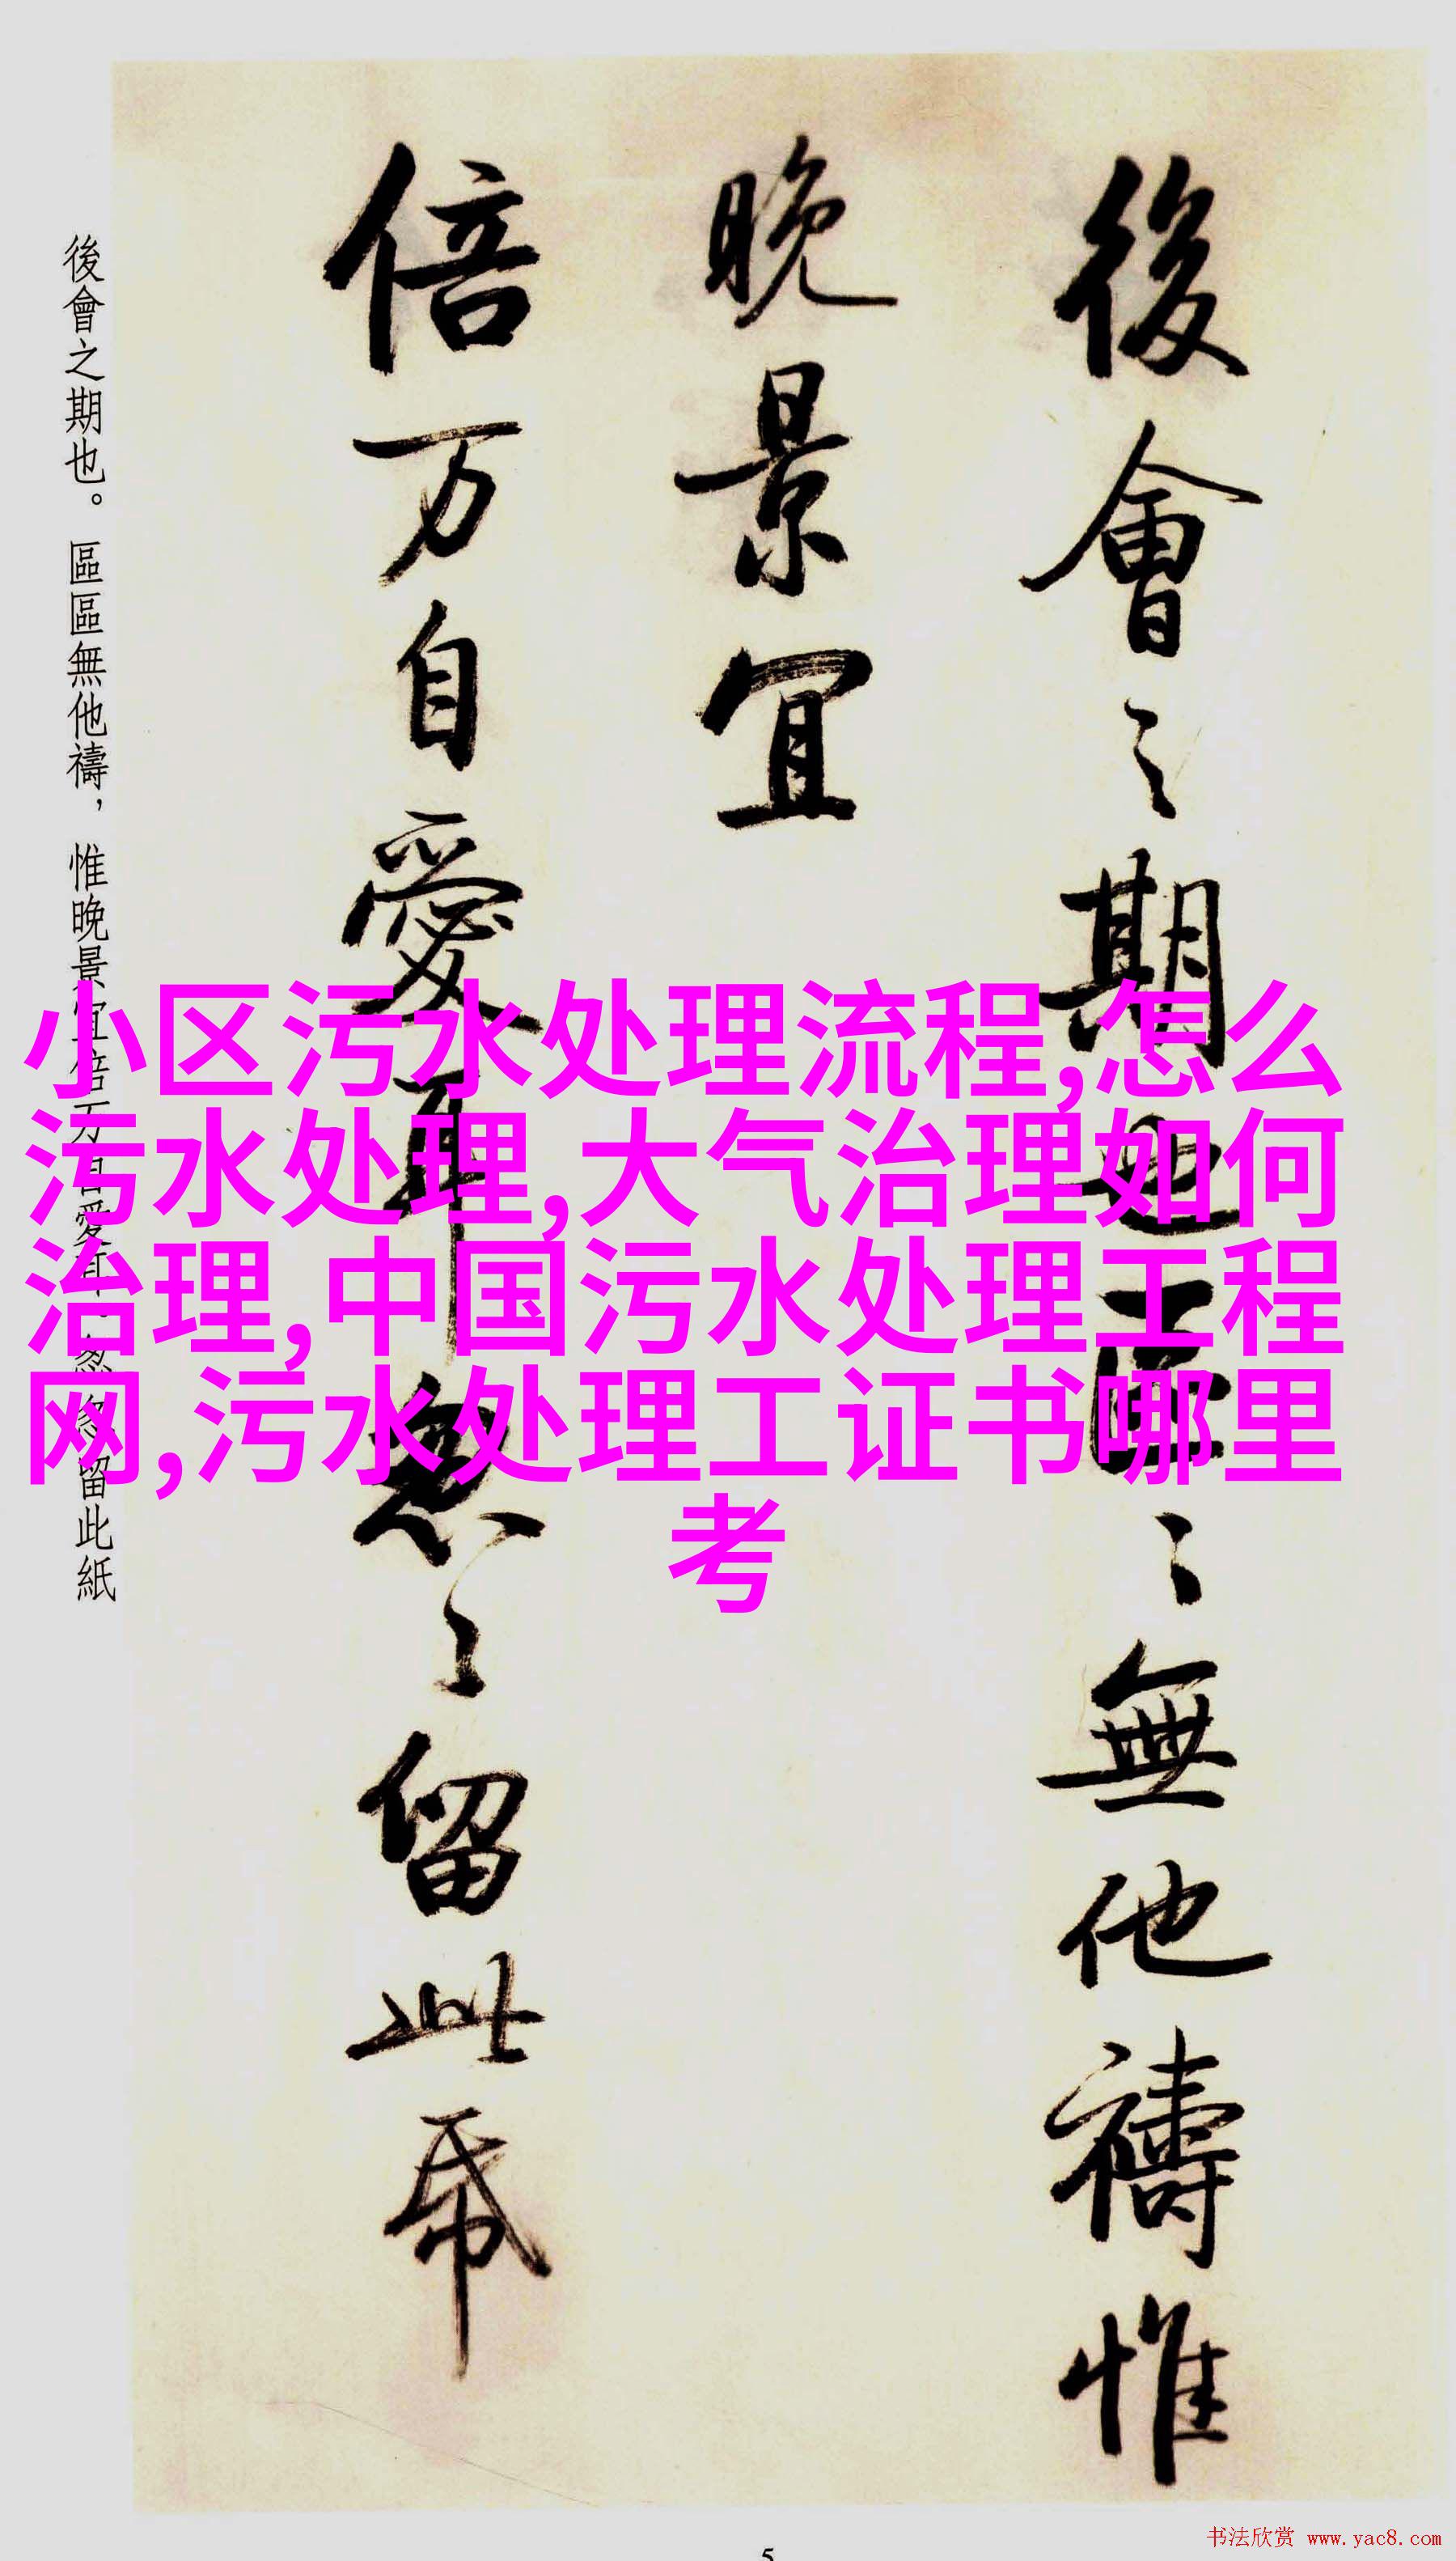 後會之期也區〻無他禱惟
晚景宜
倍万自愛耳怱〻留此帋
後會之期也。區區無他禱，惟晚景宜倍万自愛耳。怱怱留此紙
小区污水处理流程,怎么
污水处理,大气治理如何
治理,中国污水处理工程
网,污水处理工证书哪里
考
书法欣赏 www.yac8.com
5